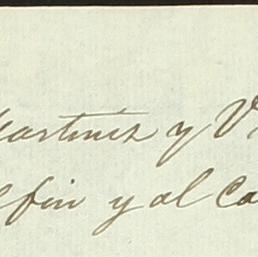 Martinez y V
fin y al Ca